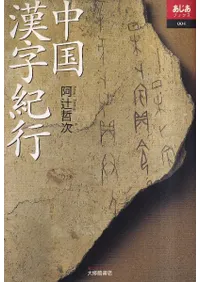 中国
漢字紀行
阿辻哲次
あじあ
ブックス
大修館書店